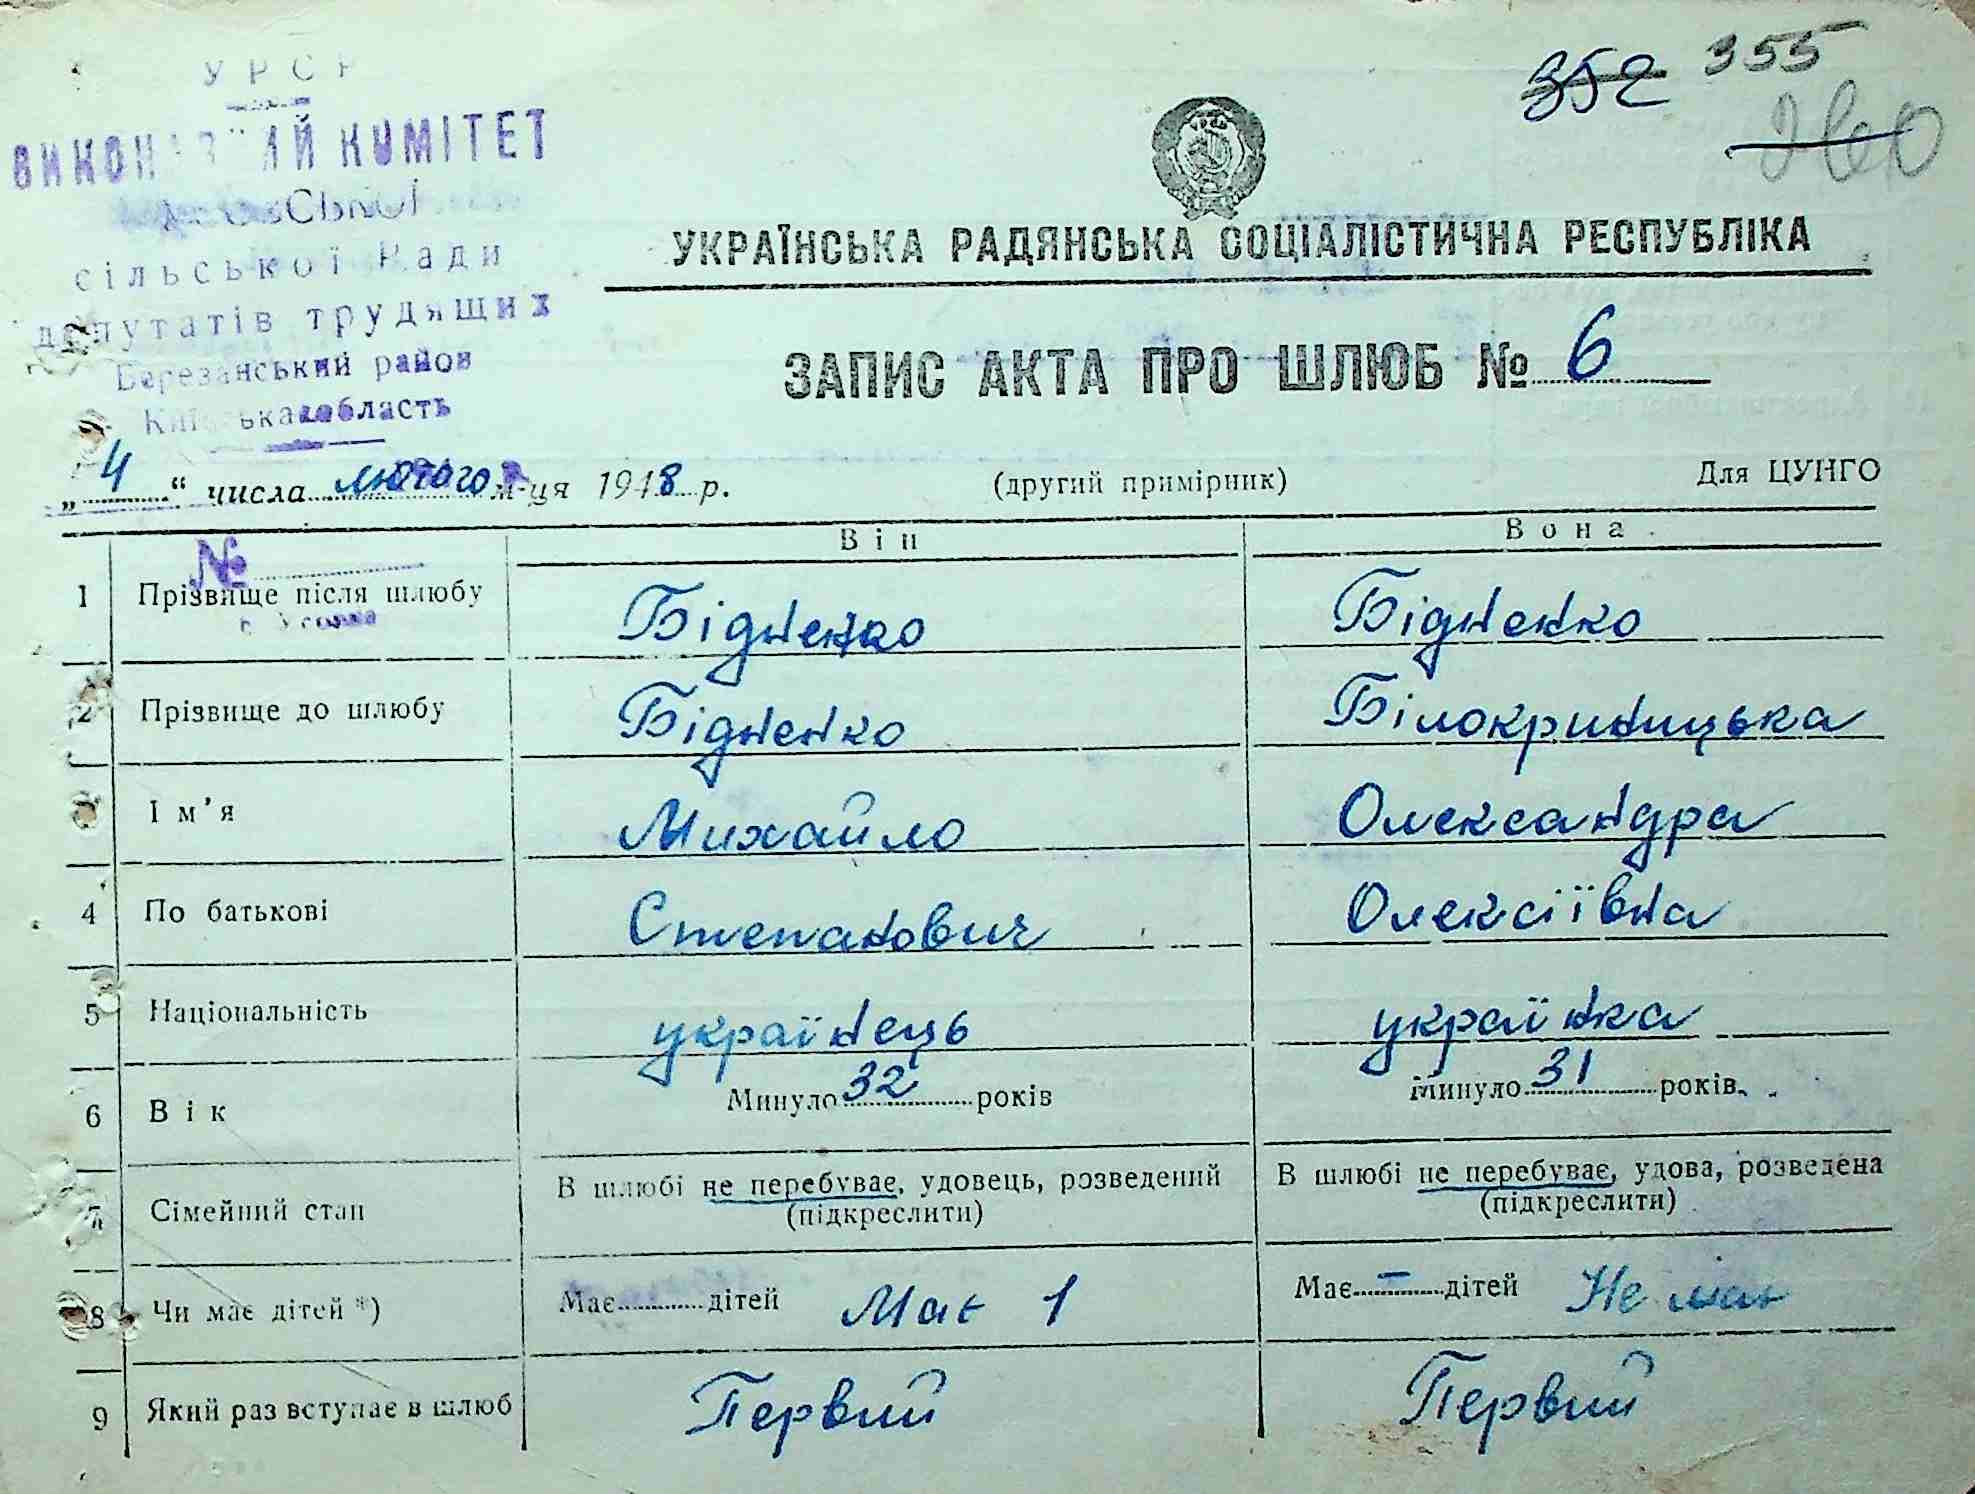 УРСР
ВИКОНАВЧИЙ КОМІТЕТ
сільської Ради
депутатів трудящих
Березанський район
Київська область
352 355
260
УКРАЇНСЬКА РАДЯНСЬКА СОЦІАЛІСТИЧНА РЕСПУБЛІКА
ЗАПИС АКТА ПРО ШЛЮБ № 6
„4“ числа лютого м-ця 1948 р. (другий примірник) Для ЦУНГО
№
Він Вона
1 Прізвище після шлюбу Бідненко Бідненко
2 Прізвище до шлюбу Бідненко Білокриницька
Ім'я Михайло Олександра
4 По батькові Степанович Олексіївна
5 Національність українець українка
6 Вік Минуло 32 років Минуло 31 років
7 Сімейний стан В шлюбі не перебуває, удовець, розведений В шлюбі не перебуває, удова, розведена
(підкреслити) (підкреслити)
8 Чи має дітей *) Має дітей Має 1 Має – дітей Не має
9 Який раз вступає в шлюб Первий Первий